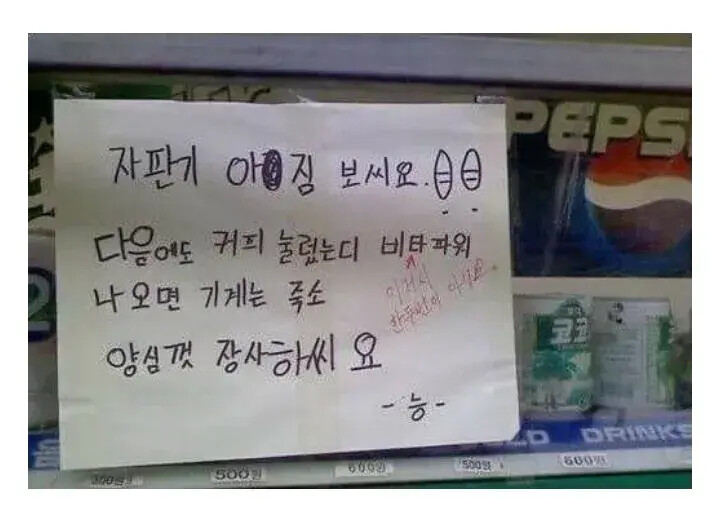 PEPS
자판기 아짐 보씨요.
다음에도 커피 눌렀는디 비타파워
나오면 기계는 죽소
양심껏 장사하씨요
-능-
코코
DRINKS
300원
500원
600원
500원
600원